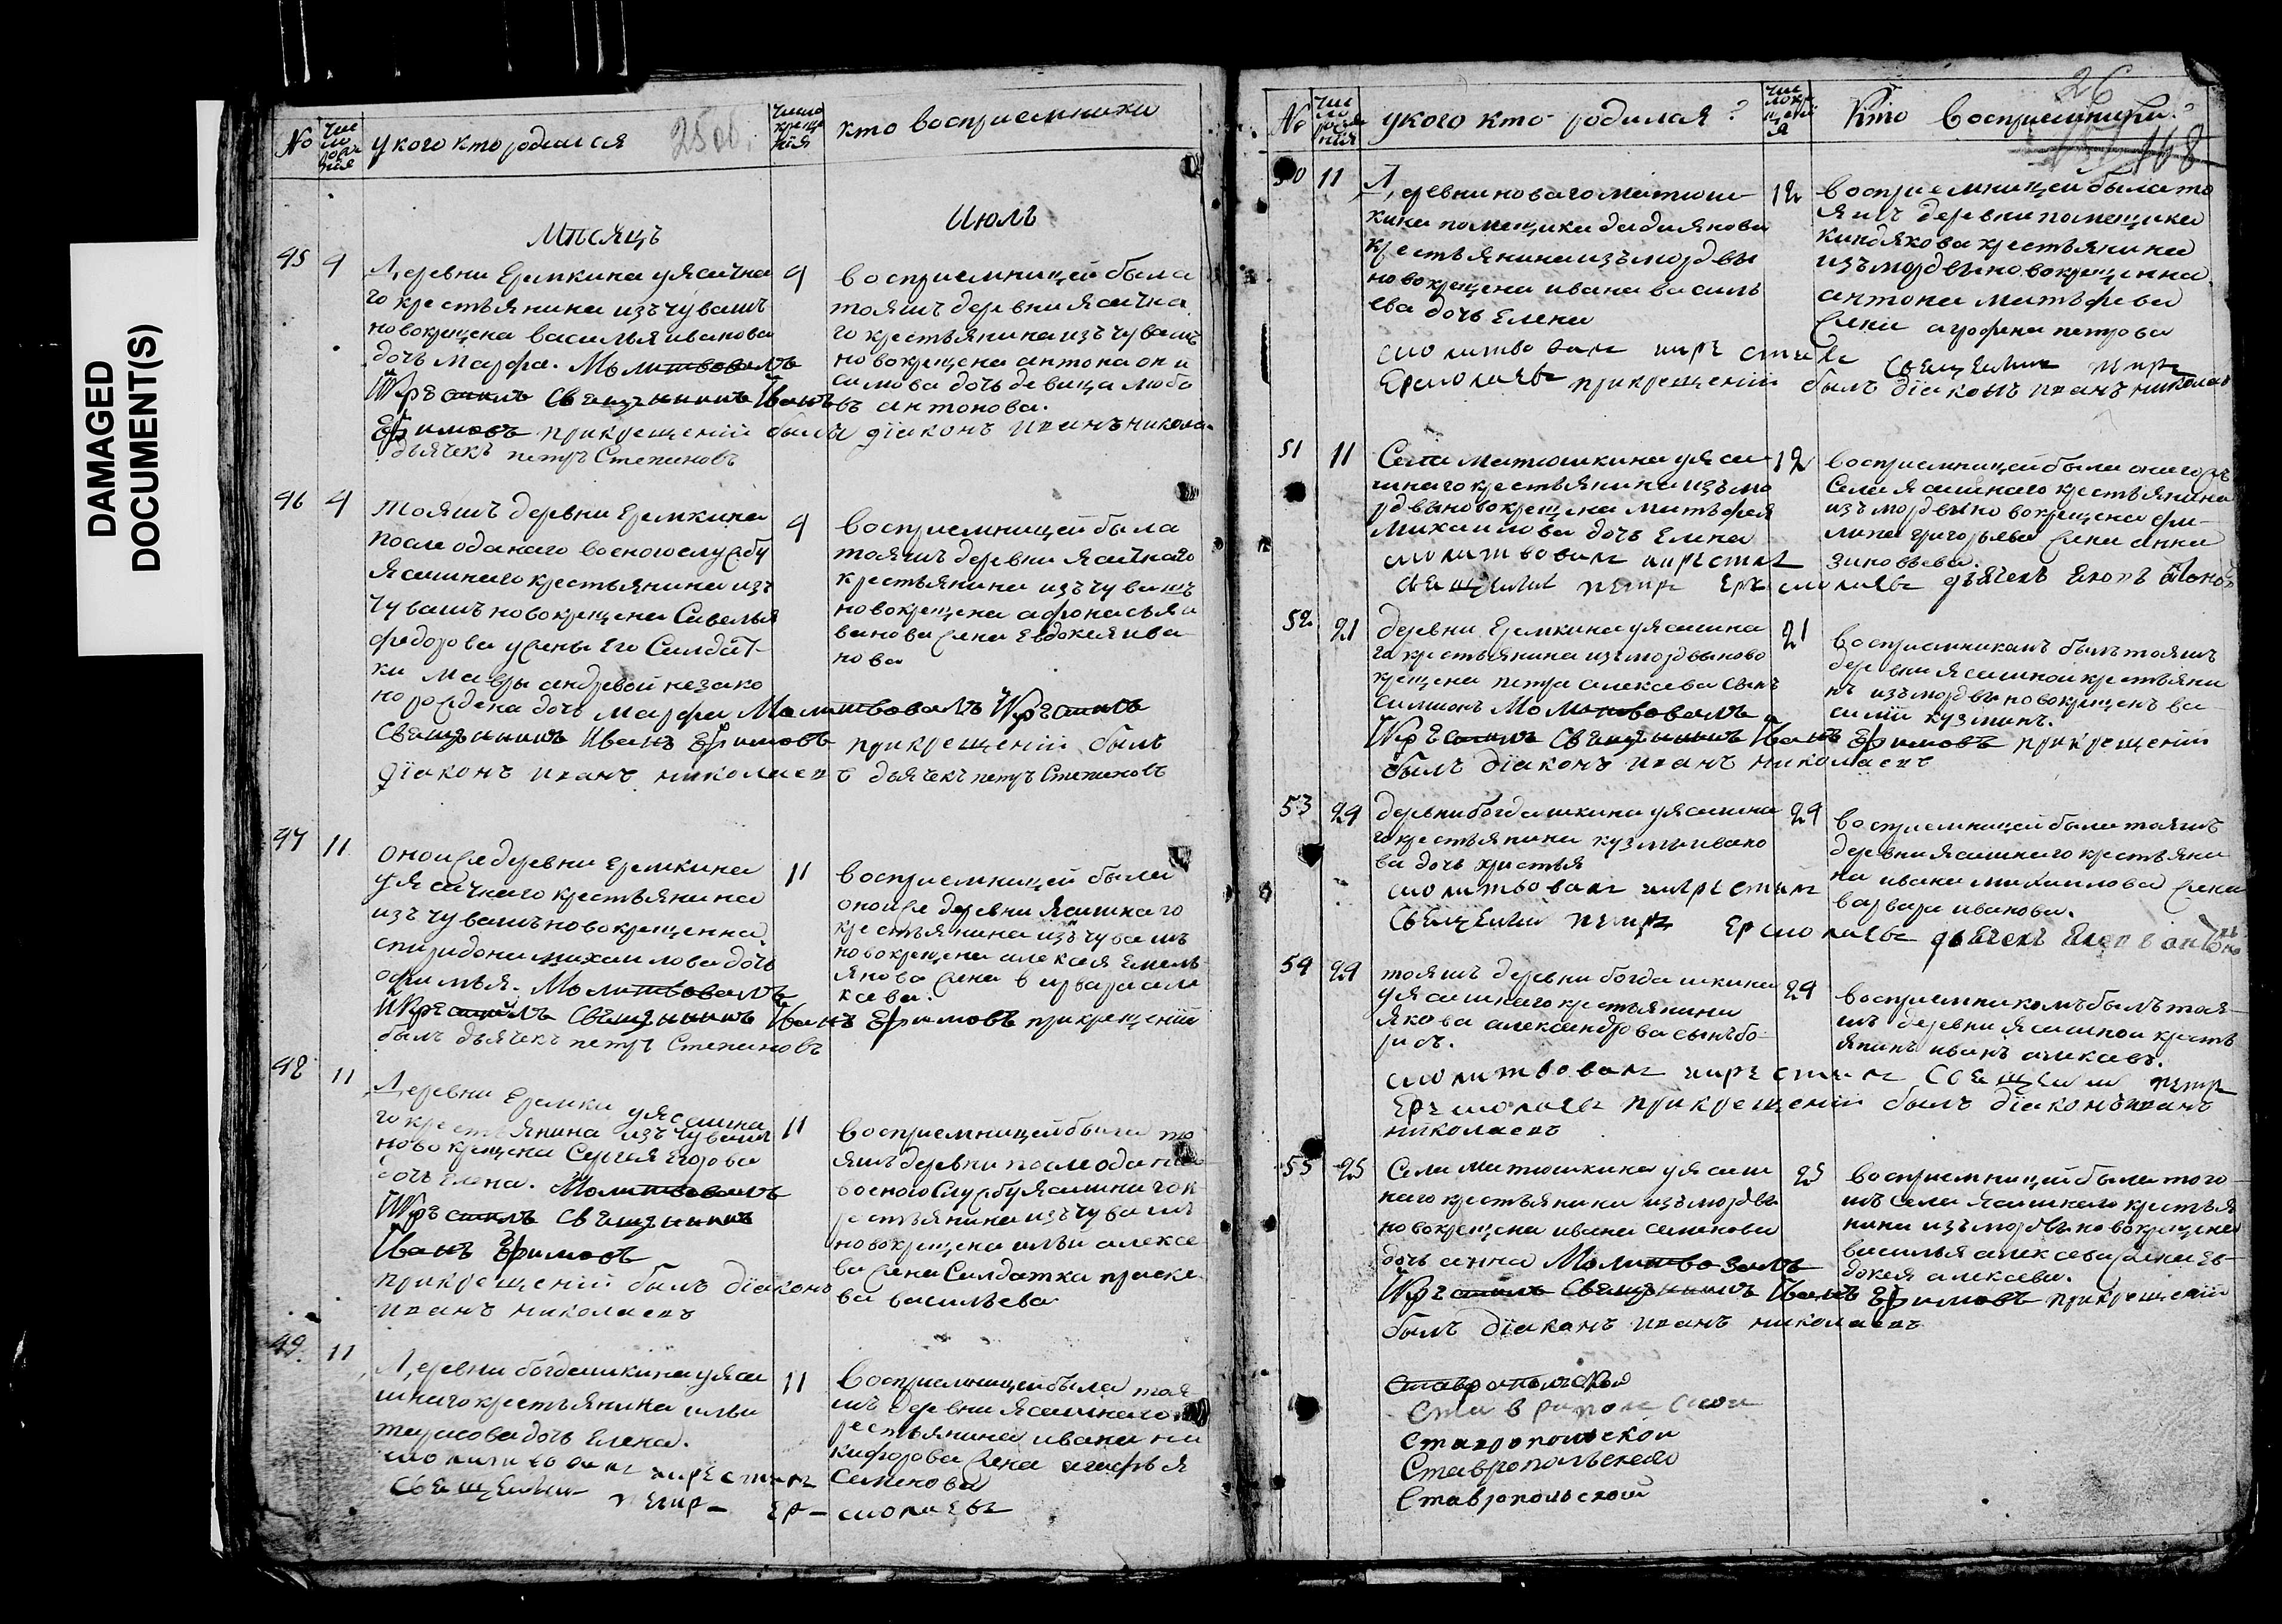 DAMAGED
DOCUMENT(S)
№
число рождения
у кого кто родился
25 об.
число крещения
кто восприемники
Месяцъ
Июль
45 4
Деревни Еремкина у ясачна
го крестьянина изъ чувашъ
новокрещена василья иванова
дочь марфа. Молитвовалъ
И крестилъ Священникъ Иванъ
Ефимовъ прикрещении былъ дiаконъ иванъ никола
дьячекъ петръ Степановъ
4
восприемницей была
тояжъ деревни ясачна
го крестьянина изъ чувашъ
новокрещена антона они
симова дочь девица любо
въ антонова.
46 4
тояжъ деревни Еремкина
после оданаго военою службу
ясашнаго крестьянина изъ
чувашъ новокрещена Савелья
федорова у жены его Салдат-
ки мавры андревой незако
норождена дочь марфа Молитвовалъ И крестилъ
Священникъ Иванъ Ефимовъ прикрещении былъ
дiаконъ иванъ николаевъ дьячекъ петръ Степановъ
4
восприемницей была
тояжъ деревни ясачнаго
крестьянина изъ чувашъ
новокрещена афонасья и
ванова жена Евдокея ива
нова
47 11
оной же деревни Еремкина
у ясачнаго крестьянина
изъ чувашъ новокрещенна
спиридона михаилова дочь
офимья. Молитвовалъ
И крестилъ Священникъ Иванъ Ефимовъ прикрещении
былъ дьячекъ петръ Степановъ
11
восприемницей была
оной же деревни ясашнаго
крестьянина изъ чувашъ
новокрещена алексея Емель
янова жена варвара але
ксева.
48 11
Деревни Еремки у ясашна
го крестьянина изъ чувашъ
новокрещена Сергея Егорова
дочь Елена. Молитвовалъ
И крестилъ священникъ
Иванъ Ефимовъ
прикрещении былъ дiаконъ
иванъ николаевъ
11
восприемницей была то
яжъ деревни после одана
военою Службу ясашнаго к
рестьянина изъ чувашъ
новокрещена ильи алексе
ва жена Салдатка праско
ва васильева
49. 11
Деревни богдашкина у яса
шнаго крестьянина ильи
тарасова дочь Елена.
молитвовалъ икрестилъ
Священникъ петръ Ермолаевъ
11
восприемницей была тоя
жъ деревни ясашнаго к
рестьянина ивана ни
кифорова жена агафья
Семенова
№
число рождения
у кого кто родился?
число крещения
Кто восприемники?
26
148
50 11
Деревни новаго матюш-
кина помещика дадиянова
крестьянина изъ мордвы
новокрещена ивана василь
ева дочь Елена
молитвовалъ икрестилъ Священникъ петръ
Ермолаевъ прикрещении былъ дiаконъ иванъ николаев
12
восприемницей была то
яжъ деревни помещика
киндякова крестьянина
изъ мордвы новокрещенна
антона матвфева
жена агрофена петрова
51 11
Села матюшкина у яса
шнаго крестьянина изъ мо
рдвы новокрещена матвфея
михаилова дочь Елена
молитвовалъ икрестилъ
священникъ петръ Ермолаевъ дьячекъ
12
восприемницей была оного жъ
Села ясашнаго крестьянина
изъ мордвы новокрещена фи-
липа григорьева жена анна
зиновьева.
52 21
деревни Еремкина у ясашна
го крестьянина изъ мордвы ново
крещена петра алексева сынъ
симионъ Молитвовалъ
И крестилъ священникъ Иванъ Ефимовъ прикрещении
былъ дiаконъ иванъ николаевъ
21
восприемникамъ былъ тояжъ
деревни ясашной крестьяни
нъ изъ мордвы новокрещенъ ва
силiй кузминъ.
53 24
деревни богдашкина у ясашна
го крестьянина кузмы ивано
ва дочь христья
молитвовалъ икрестилъ
священникъ петръ Ермолаевъ дьячекъ
24
восприемницей была тояжъ
деревни ясашнаго крестьяни
на ивана михаилова жена
варвара иванова.
54 24
тояжъ деревни богдашкина
у ясашнаго крестьянина
якова александрова сынъ бо-
рисъ.
молитвовалъ икрестилъ Священникъ петръ
Ермолаевъ прикрещении былъ дiаконъ иванъ
николаевъ
24
восприемникомъ былъ тоя-
жъ деревни ясашной кресть
янинъ иванъ алексевъ.
55 25
Села матюшкина у ясаш
наго крестьянина изъ мордвы
новокрещена ивана семенова
дочь анна Молитвовалъ
И крестилъ священникъ Иванъ Ефимовъ прикрещении
былъ дiаконъ иванъ николаевъ
25
восприемницей была того
жъ села ясашнаго крестья
нина изъ мордвы новокрещена
василья алексева жена ев-
докея алексеева.
Ставропольской
Ставропольской
Ставропольской
Ставропольскаго
Ставропольской